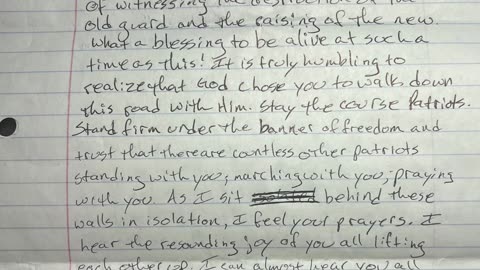 of witnessing the destruction of the
old guard and the raising of the new.
What a blessing to be alive at such a
time as this! It is truly humbling to
realize that God chose you to walk down
this road with Him. Stay the course Patriots.
Stand firm under the banner of freedom and
trust that there are countless other patriots
standing with you, marching with you, praying
with you. As I sit behind these
walls in isolation, I feel your prayers. I
hear the resounding joy of you all lifting
each other up. I can almost hear you all